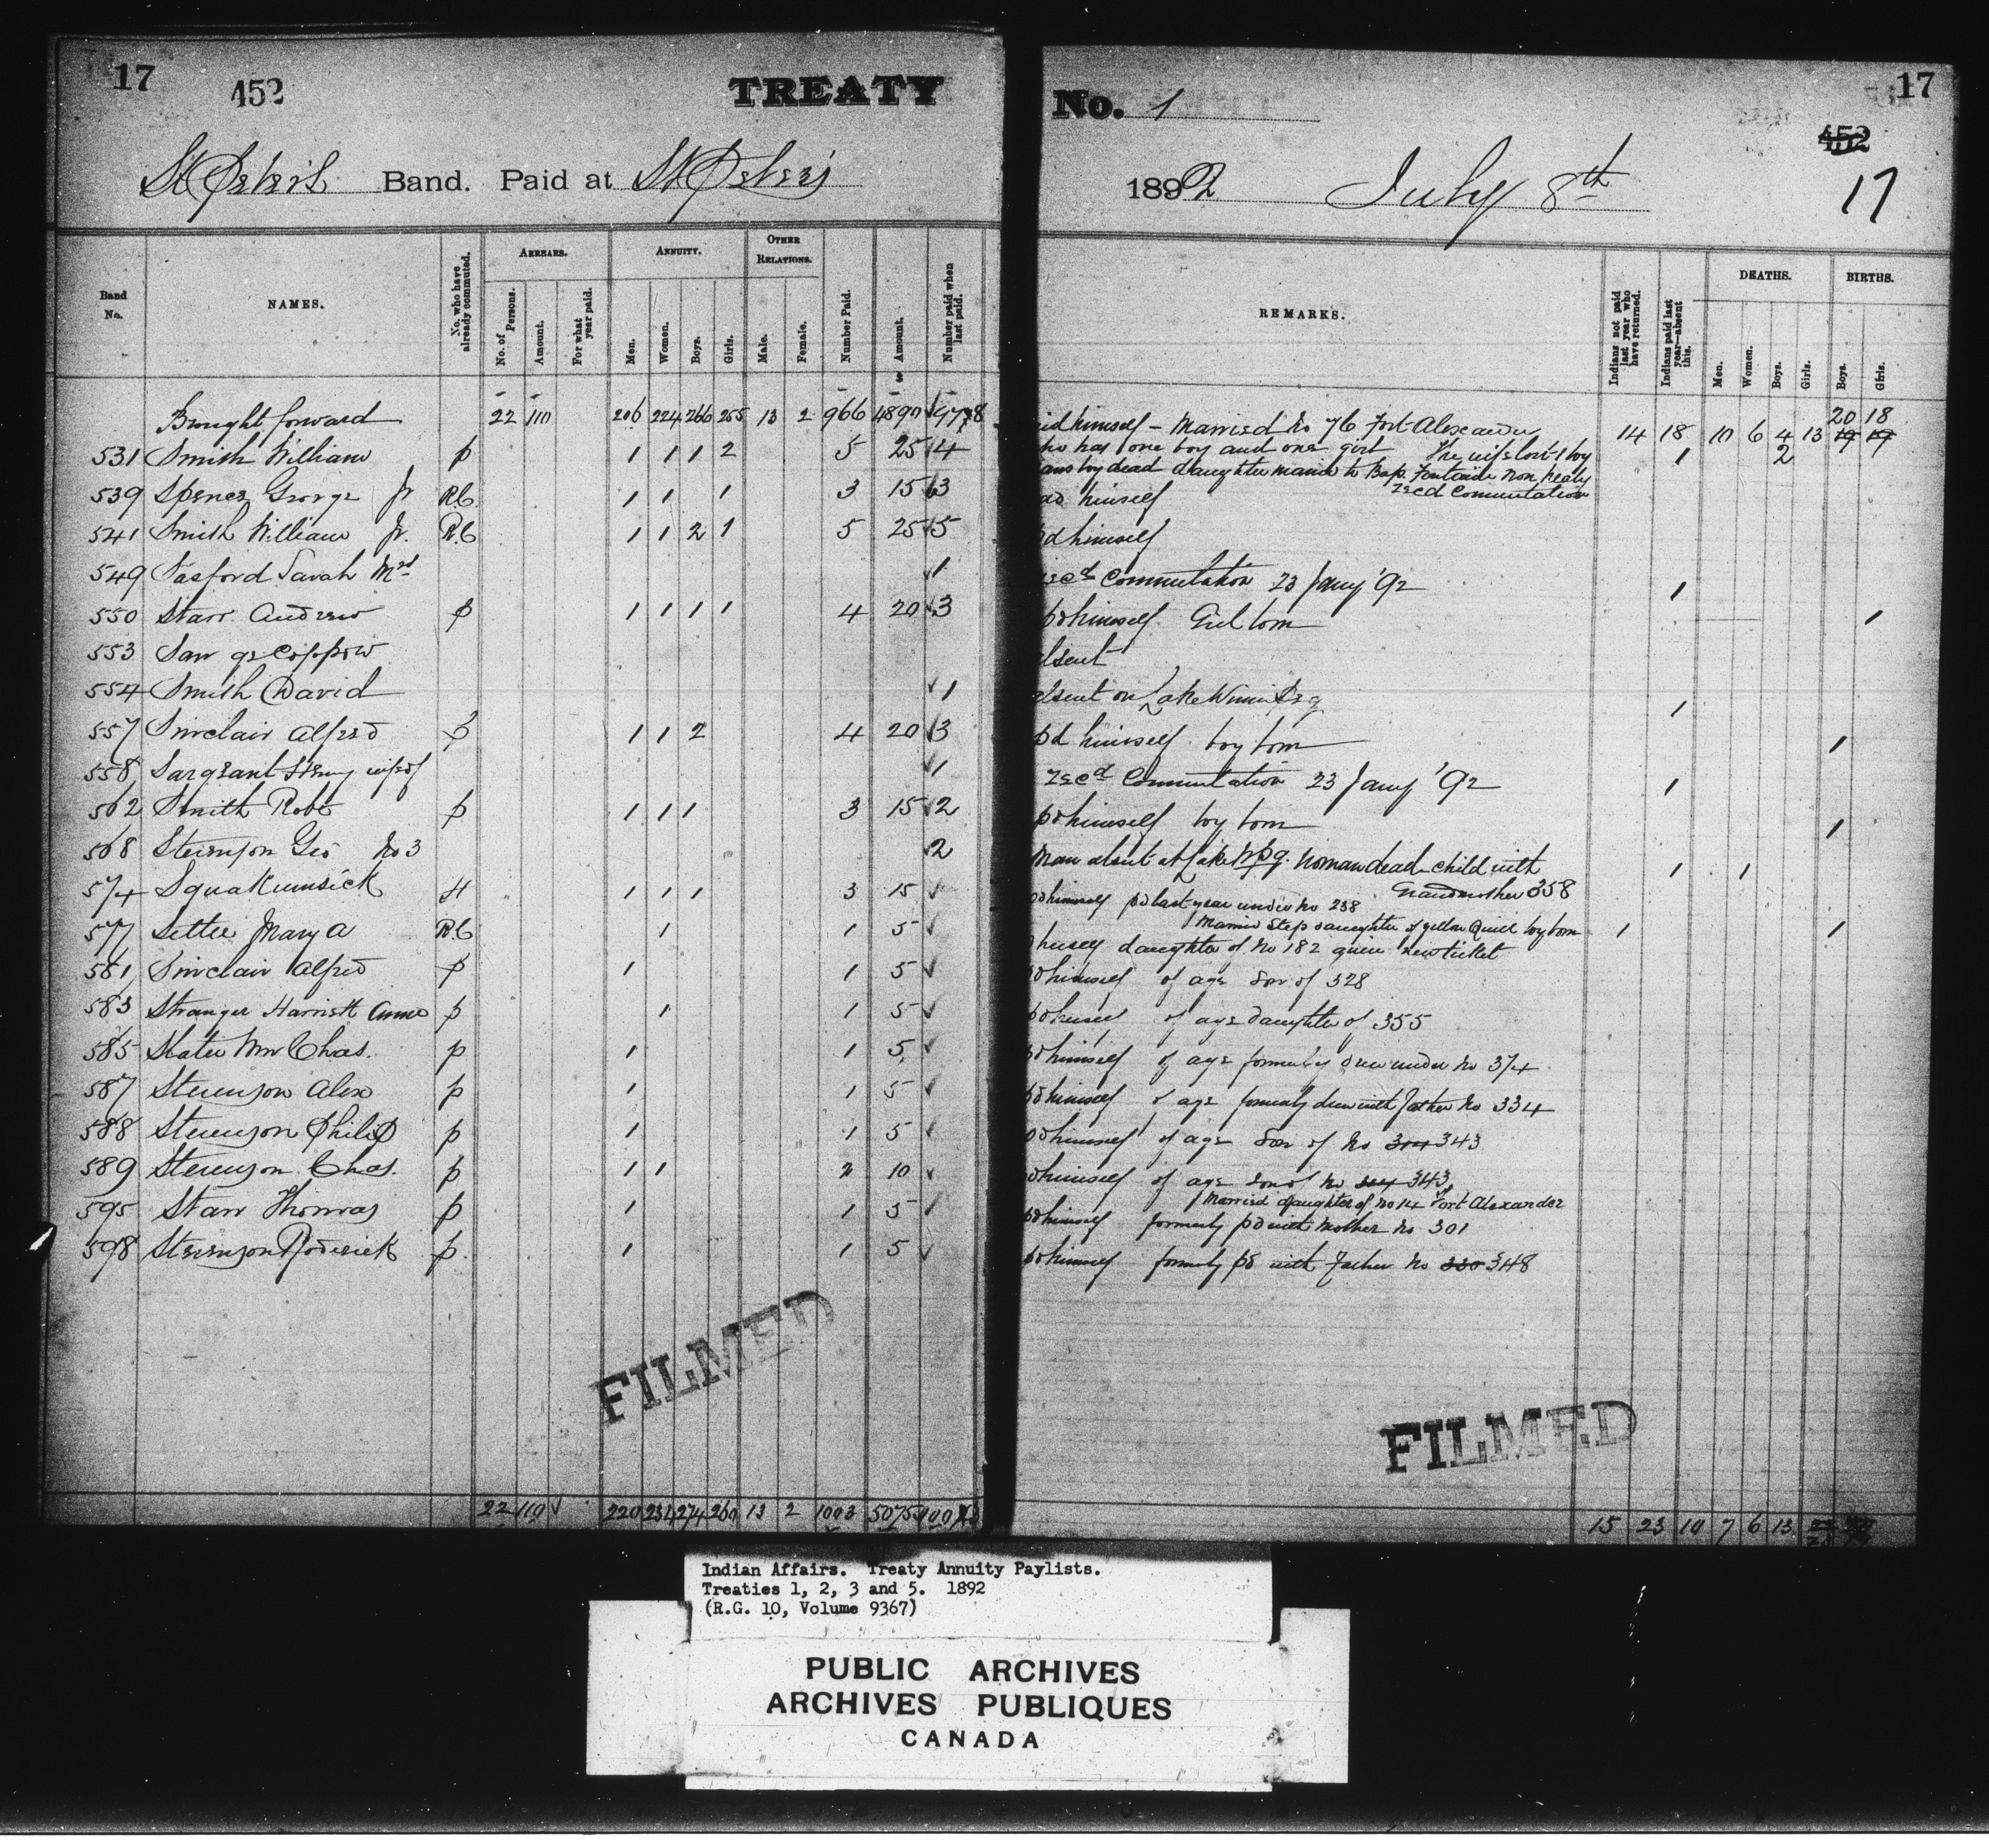 17 452 TREATY
St Peter's Band. Paid at St Peter's
Band No. NAMES. No. who have already commuted. ARREARS. No. of Persons. Amount. For what year paid. ANNUITY. Men. Women. Boys. Girls. OTHER RELATIONS. Male. Female. Number Paid. Amount. $ Number paid when last paid.
Brought forward 22 110 206 224 266 255 13 2 966 4890
531 Smith William p 1 1 1 2 5 25 4
539 Spence George Jr R.C. 1 1 1 3 15 3
541 Smith William Jr. R.C 1 1 2 1 5 25 5
549 Sasford Sarah Mrs 1
550 Starr Andrew p 1 1 1 1 4 20 3
553 Saw ge coppow
554 Smith David 1
557 Sinclair Alfred p 1 1 2 4 20 3
558 Sargeant Henry wife of 1
562 Smith Robt p 1 1 1 3 15 2
568 Stevenson Geo No 3 2
574 Squakumsick H 1 1 1 3 15
577 Settee Mary A R.C 1 1 5
581 Sinclair Alfred p 1 1 5
583 Stranger Harriett Anne p 1 1 5
585 Slater Wm Chas. p 1 1 5
587 Stevenson Alex p 1 1 5
588 Stevenson Philip p 1 1 5
589 Stevenson Chas. p 1 1 2 10
595 Starr Thomas p 1 1 5
598 Stevenson Roderick p. 1 1 5
FILMED
22 110 220 231 274 260 13 2 1003 5075
No. 1 17
452
1892 July 8th 17
REMARKS. Indians not paid last year who have returned. Indians paid last year—absent this. DEATHS. Men. Women. Boys. Girls. BIRTHS. Boys. Girls.
20 18
himself - Married No 76 Fort Alexander 14 18 10 6 4 13 19 19
who has one boy and one girl The wife lost 1 boy 1 2
boy dead daughter married to Bap. Fontaine non treaty
recd Commutation
himself
pd himself
recd Commutation 23 Jany '92 1
pd himself Girl born 1
absent
absent on Lake Winnipeg 1
pd himself boy born 1
recd Commutation 23 Jany '92 1
pd himself boy born 1
Man absent at Lake Wpg. Woman dead - child with 1 1
Grandmother 358
pd himself pd last year under No 238
Married Step daughter of Yellow Quill boy born 1 1
herself daughter of No 182 given new ticket
pd himself of age Son of 328
pd herself of age daughter of 355
pd himself of age formerly drew under No 374
pd himself of age formerly drew with father No 334
pd himself of age Son of No 304 343
pd himself of age son of No 343
Married daughter of No 14 Fort Alexander
pd himself formerly pd with Mother No 301
pd himself formerly pd with Father No 330 348
FILMED
15 23 10 7 6 13
Indian Affairs. Treaty Annuity Paylists.
Treaties 1, 2, 3 and 5. 1892
(R.G. 10, Volume 9367)
PUBLIC ARCHIVES
ARCHIVES PUBLIQUES
CANADA